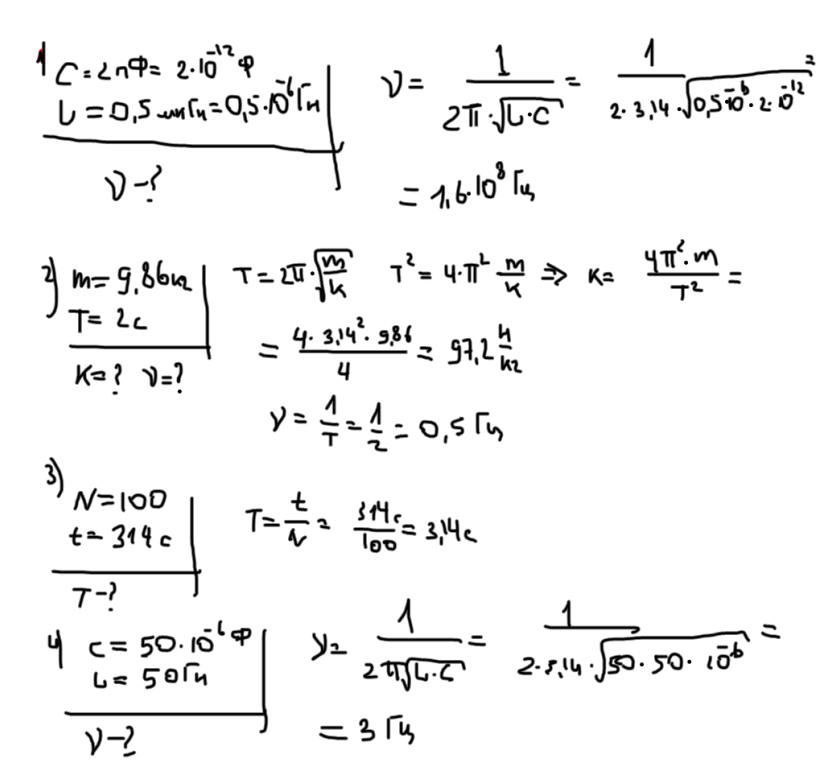 1 C = 2пФ = 2·10⁻¹² Ф
L = 0,5 мкГн = 0,5·10⁻⁶ Гн
ν - ?
ν = 1/(2π·√(L·C)) = 1/(2·3,14·√(0,5·10⁻⁶·2·10⁻¹²)) =
= 1,6·10⁸ Гц
2) m = 9,86кг
T = 2с
K = ? ν = ?
T = 2π·√(m/k) T² = 4·π² m/k ⇒ K = 4π²·m/T² =
= 4·3,14²·9,86/4 = 97,2 н/кг
ν = 1/T = 1/2 = 0,5 Гц
3) N = 100
t = 314 с
T - ?
T = t/N = 314с/100 = 3,14с
4) C = 50·10⁻⁶ Ф
L = 50Гн
ν - ?
ν = 1/(2π√(L·C)) = 1/(2·3,14·√(50·50·10⁻⁶)) =
= 3 Гц